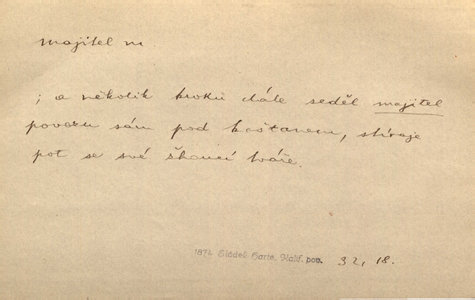 majitel m.
; a několik kroků dále seděl majitel
povozu sám pod kaštanem, stíraje
pot se své žhoucí tváře.
1874 Sládek Harte, Kalif. pov. 32, 18.